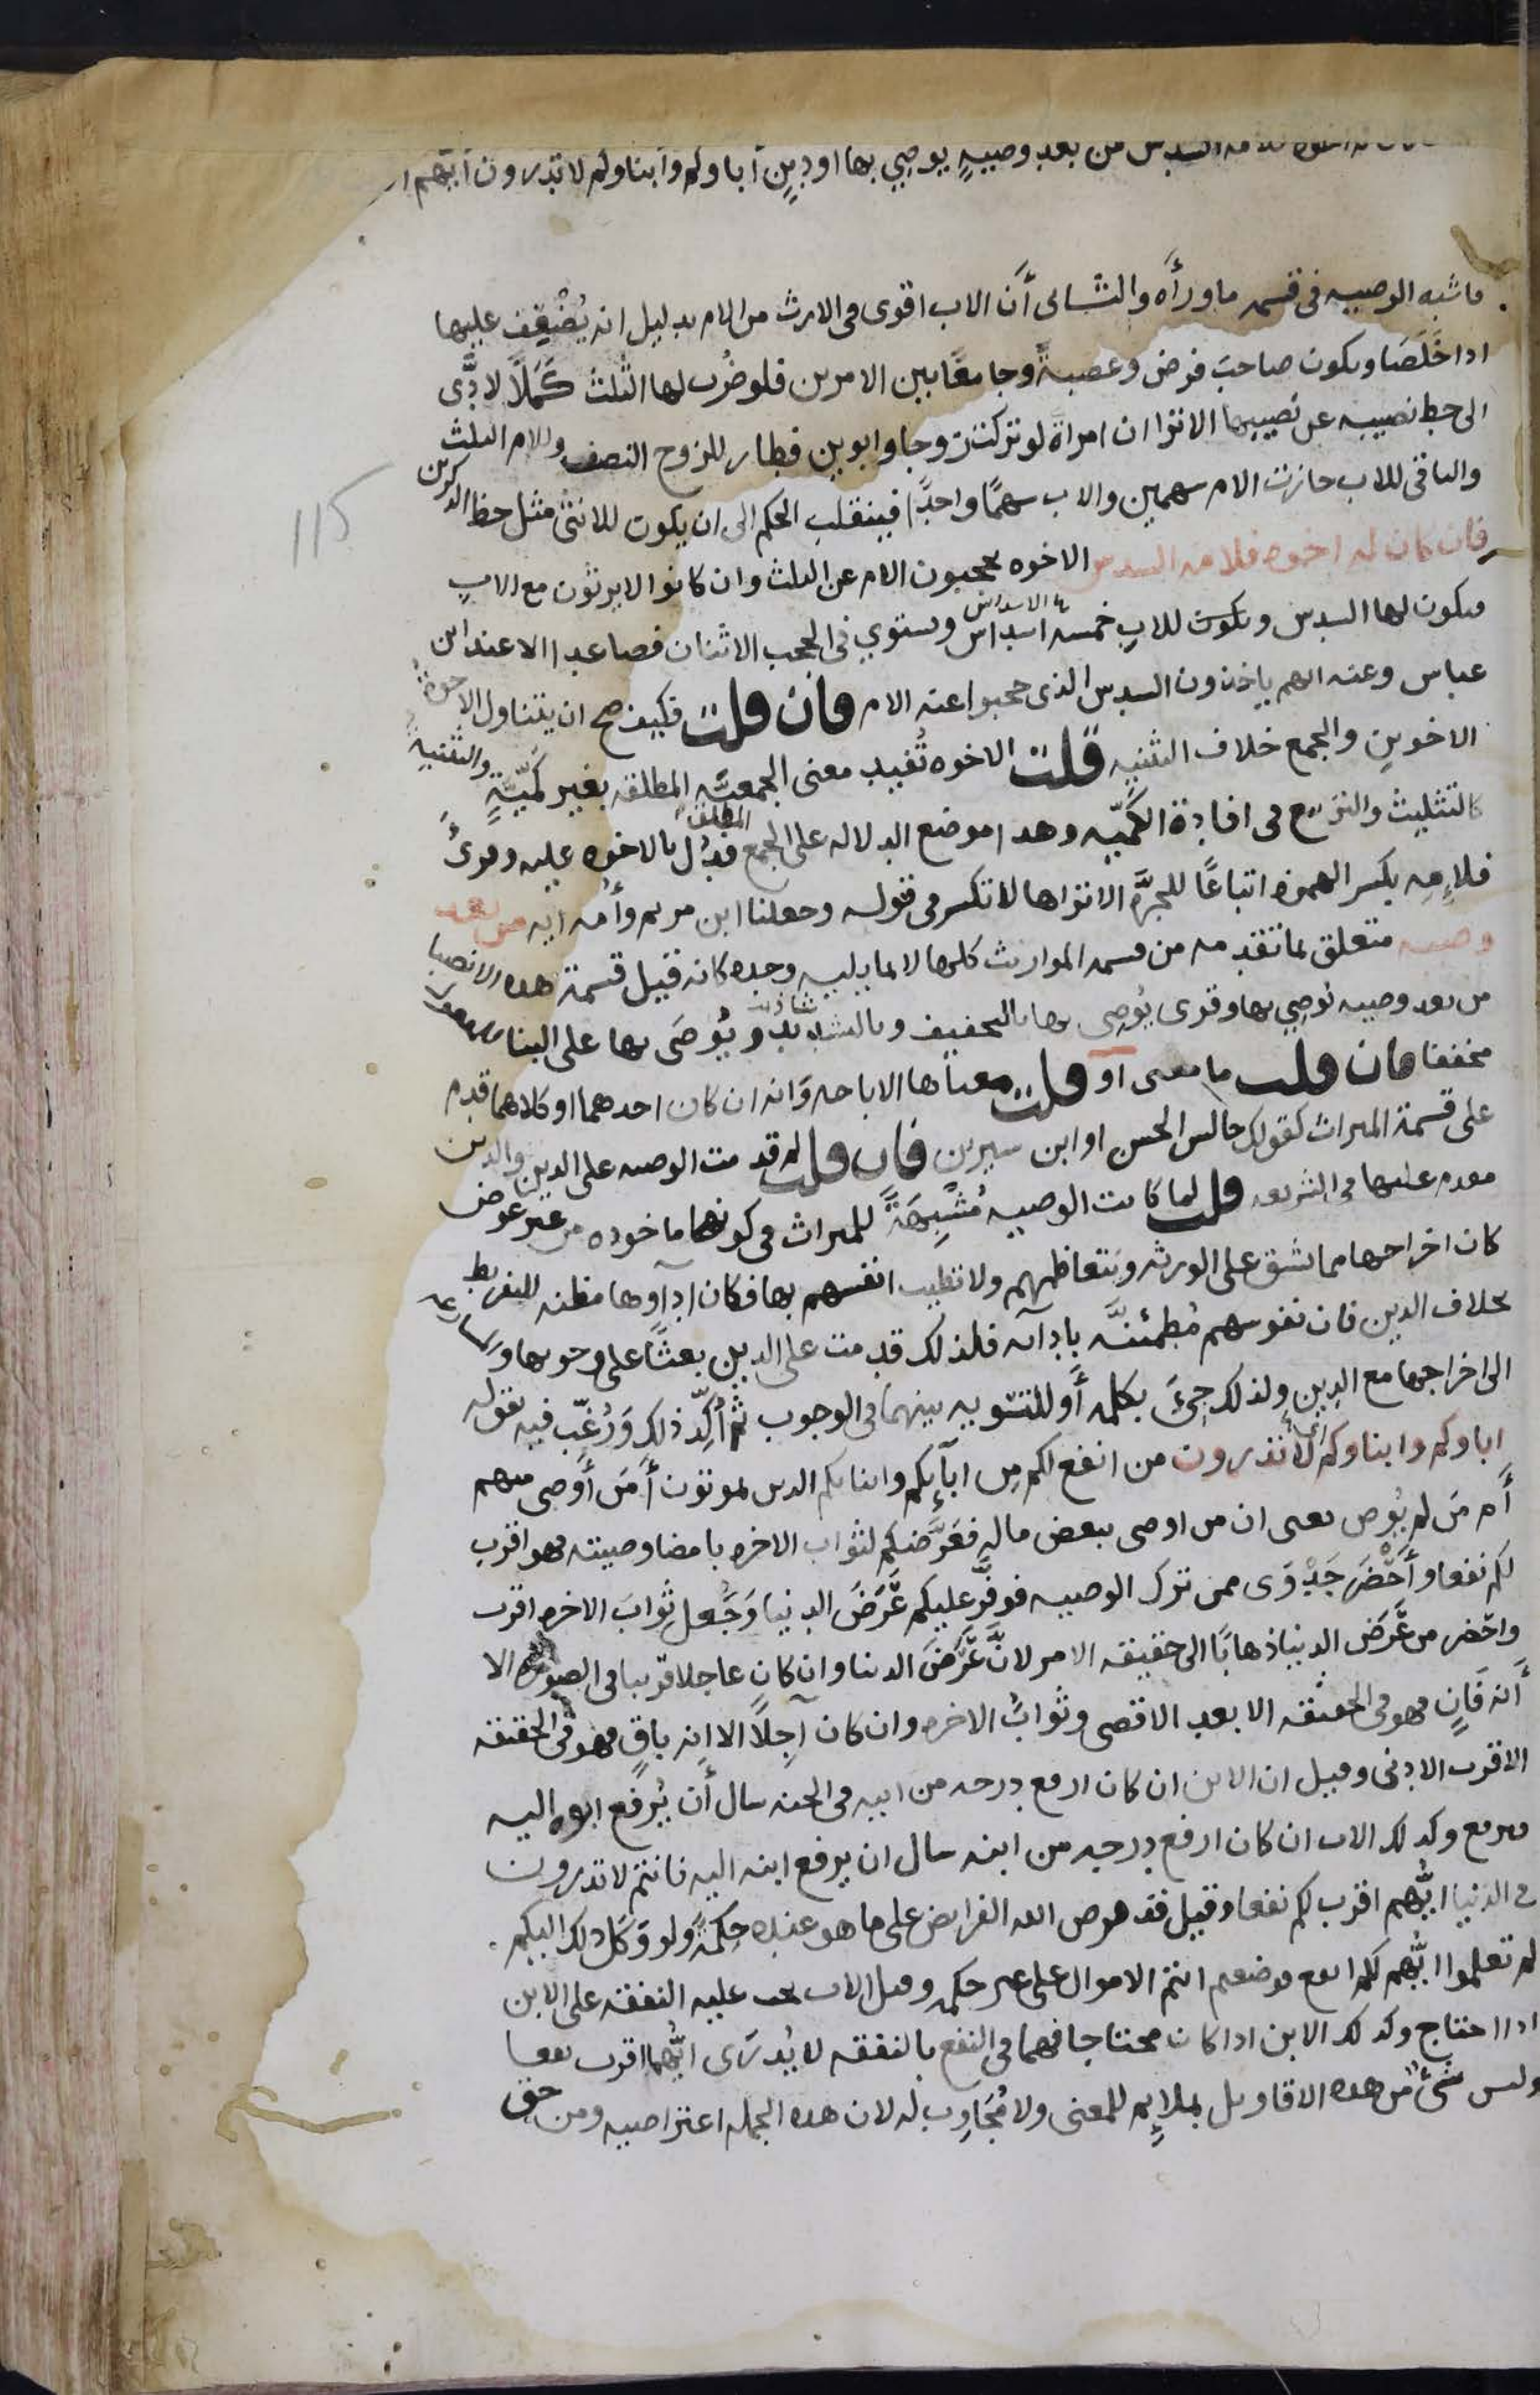 السدس من بعد وصيةٍ يوصي بها او دينٍ آباوكم وابناوكم لا تدرون ايهم
فاشبه الوصيه فى قسمه ما ورأه والثانى أن الاب اقوى فى الارث من الام بدليل انه يُضْعِف عليها
اذا خلصا ويكون صاحبَ فرض وعصبةً وجامعًا بين الامرين فلو ضُرب لها الثلث كَمَلًا لادَّى
الى حط نصيبه عن نصيبها الا ترا ان امراة لو تركت زوجا وابوين فصار للزوج النصف وللام الثلث
والباقى للاب حازت الام سهمين والاب سهمًا واحدًا فينقلب الحكم الى ان يكون للانثى مثل حظ الذكرين
فان كان له اخوه فلامه السدس الاخوه يحجبون الام عن الثلث وان كانوا لا يرثون مع الاب
فيكون لها السدس ويكون للاب خمسه اسداس ويستوي فى الحجب الاثنان فصاعدا الا عند ابن
عباس وعنه انهم ياخذون السدس الذى حجبوا عنه الام فان قلت فكيف صح ان يتناول الاخوةُ
الاخوينِ والجمع خلاف التثنيه قلت الاخوه تُفيد معنى الجمعيّه المطلقه بغير كَمّيّةٍ والتثنيه
كالتثليث والتربيع فى افادة الكَمّيه وهدا موضع الدلاله على الجمع المطلق فدُل بالاخوه عليه وقرئ
فلاِمِه بكسر الهمزه اتباعًا للجرَّه الا تراها لا تكسر فى قوله وجعلنا ابن مريم وأُمه ايه من بعد
وصيه متعلق بما تقدمه من قسمه المواريث كلها لا بما يليه وحده كانه قيل قسمة هده الانصبا
من بعد وصيه يُوصي بها وقرى يُوصِى بها بالتخفيف وبالتشديد ويُوصَى بها على البنا للمفعول
مخففا فان قلت ما معنى او قلت معناها الاباحه وَانه ان كان احدهما او كلاهما قدم
على قسمة الميراث كقولك جالس الحسن او ابن سيرين فان قلت لم قدمت الوصيه على الدين والدين
مقدم عليها فى الشريعه قلت لما كانت الوصيه مُشْبِهَةً للميراث فى كونها ماخوده من غير عوض
كان اخراجها مما يشق على الورثه ويَتعاظمهم ولا تطيب انفسهم بها فكان ادآوها مظنه للتفريط
بخلاف الدين فان نفوسهم مُطمئنَّه بادآئه فلذلك قدمت على الدين بعثًا على وجوبها والمسارعه
الى اخراجها مع الدين ولذلك جِيَ بكلمه أَو للتسويه بينهما فى الوجوب ثم أُكِّد ذلك وَرُغِّب فيه بقوله
اباوكم وابناوكم لا تدرون من انفع لكم مِن ابآئكم وابنائكم الدين يموتون أَمَن أَوصى منهم
أَم مَن لم يُوص يعنى ان من اوصى ببعض ماله فعَرَّضكم لثواب الاخره بامضا وصيته فهو اقرب
لكم نفعا وأَحْضَر جَدْوَى ممن ترك الوصيه فوفَّر عليكم عَرَضَ الدنيا وَجَعل ثوابَ الاخره اقرب
واحضر من عَرَض الدنيا ذهابًا الى حقيقه الامر لانَّ عَرَضَ الدنيا وان كان عاجلا قريبا فى الصوره الا
أَنه فَانٍ فهو فى الحقيقه الابعد الاقصى وثوابُ الاخره وان كان آجلًا الا انه باقٍ فهو فى الحقيقه
الاقرب الادنى وقيل ان الابن ان كان ارفع درجه من ابيه فى الجنه سال أَن يُرفع ابوه اليه
فيرفع وكذلك الاب ان كان ارفع درجه من ابنه سال ان يرفع ابنه اليه فانتم لا تدرون
فى الدنيا ايُّهم اقرب لكم نفعا وقيل فقد فرض الله الفرايض على ما هو عنده حِكمةٌ ولو وَكَل ذلك اليكم
لم تعلموا ايُّهم لكم انفع فوضعتم انتم الاموال على غير حكمه وقيل الاب يجب عليه النفقه على الابن
ادا احتاج وكدلك الابن اذا كان محتاجا فهما فى النفع بالنفقه لا يُدرَى ايُّهما اقرب نفعا
وليس شئٌ من هده الاقاويل بملائِمٍ للمعنى ولا مُجَاوِب له لان هده الجمله اعتراضيه ومن حق
115